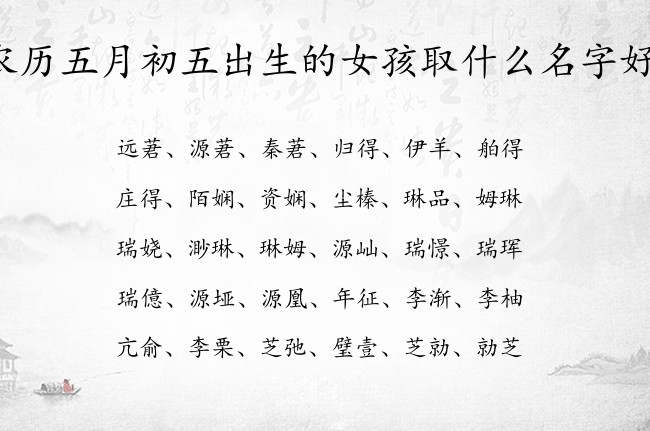 农历五月初五出生的女孩取什么名字好
远莙、源莙、秦莙、归得、伊羊、舶得
庄得、陌娴、资娴、尘榛、琳品、姆琳
瑞娆、渺琳、琳姆、源屾、瑞憬、瑞珲
瑞億、源垭、源凰、年征、李渐、李柚
亢俞、李栗、芝弛、璧壹、芝勍、勍芝